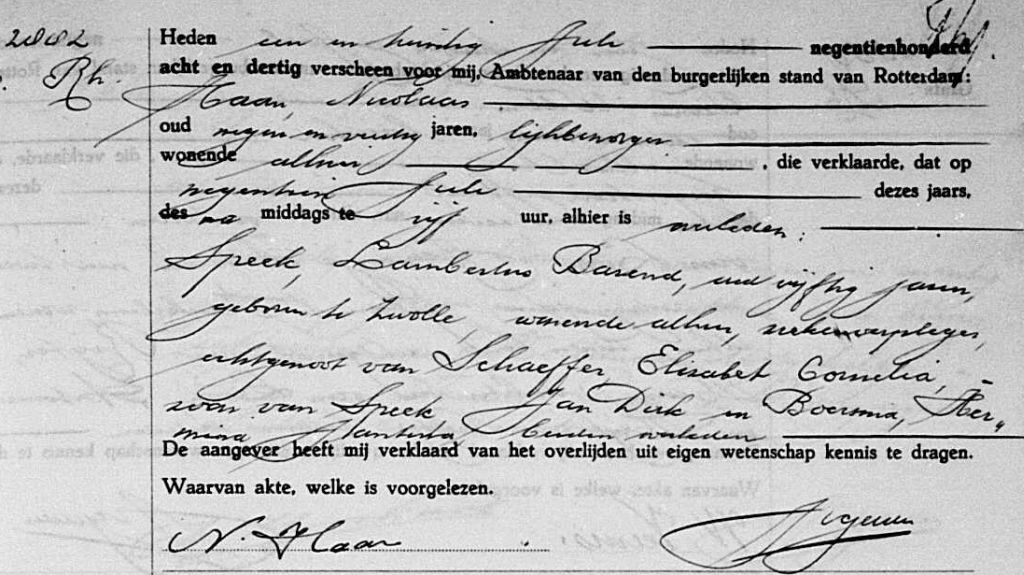 2882
Rh.
Heden een en twintig Juli negentienhonderd
acht en dertig verscheen voor mij, Ambtenaar van den burgerlijken stand van Rotterdam:
Haan, Nicolaas
oud negen en veertig jaren, lijkbezorger
wonende alhier, die verklaarde, dat op
negentien Juli dezes jaars,
des na middags te vijf uur, alhier is overleden:
Speek, Lambertus Barend, oud vijftig jaren,
geboren te Zwolle, wonende alhier, ziekenverpleger,
echtgenoot van Schaeffer Elisabet Cornelia,
zoon van Speek Jan Dirk en Boersma, Her„
mina, beiden overleden
De aangever heeft mij verklaard van het overlijden uit eigen wetenschap kennis te dragen.
Waarvan akte, welke is voorgelezen.
N. Haan